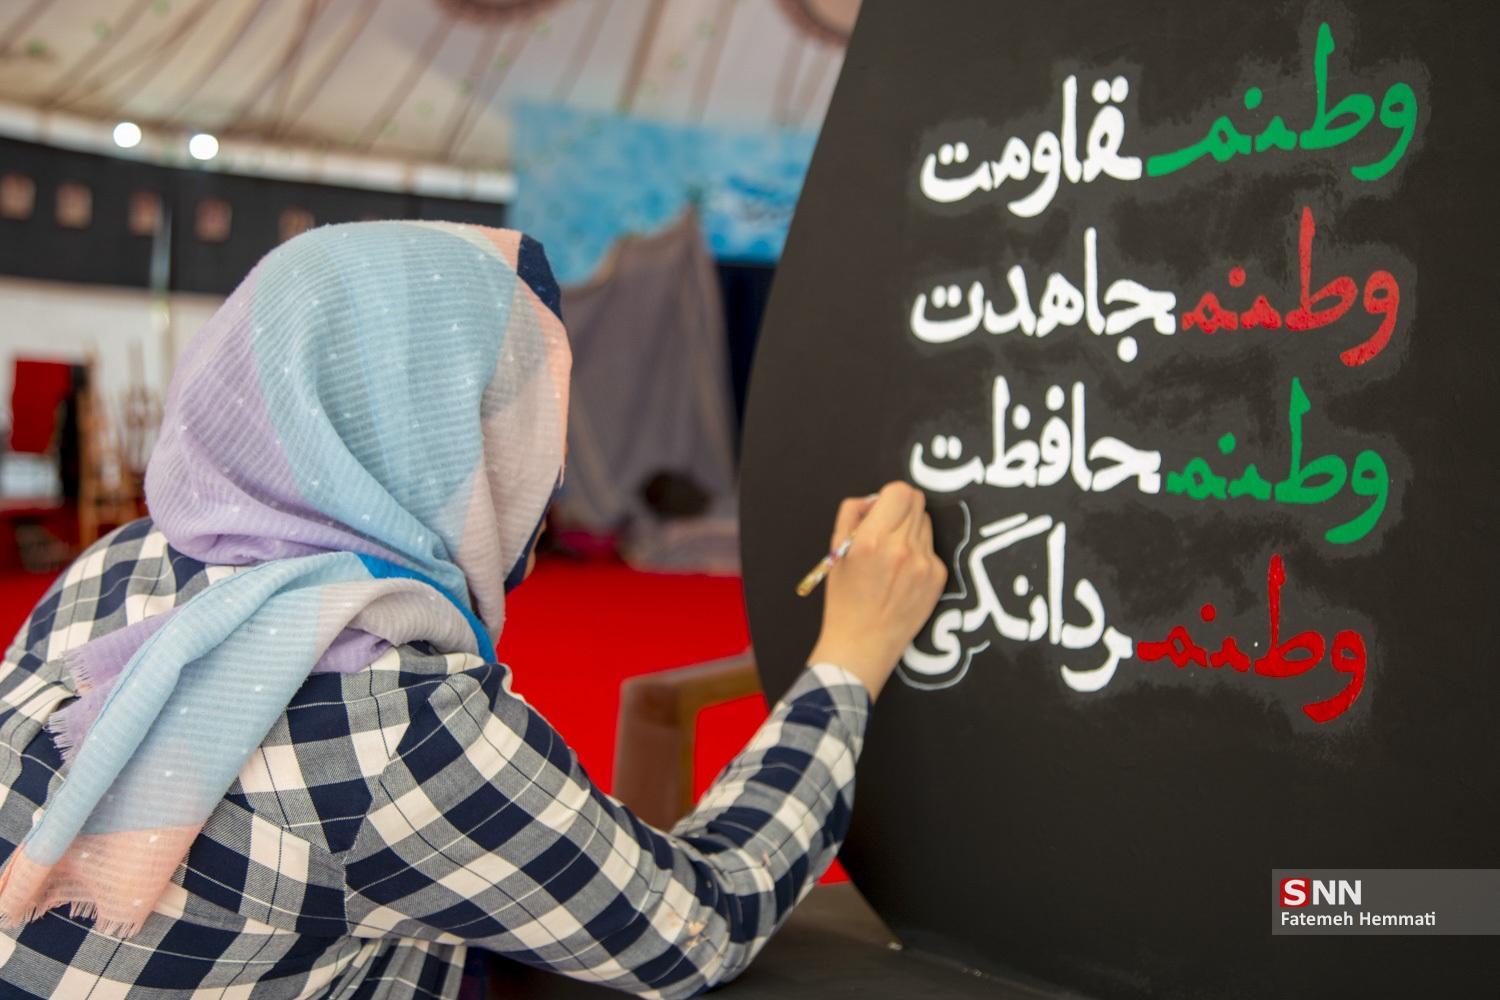 وطنمقاومت
وطنمجاهدت
وطنمحافظت
وطنمردانگی
SNN
Fatemeh Hemmati